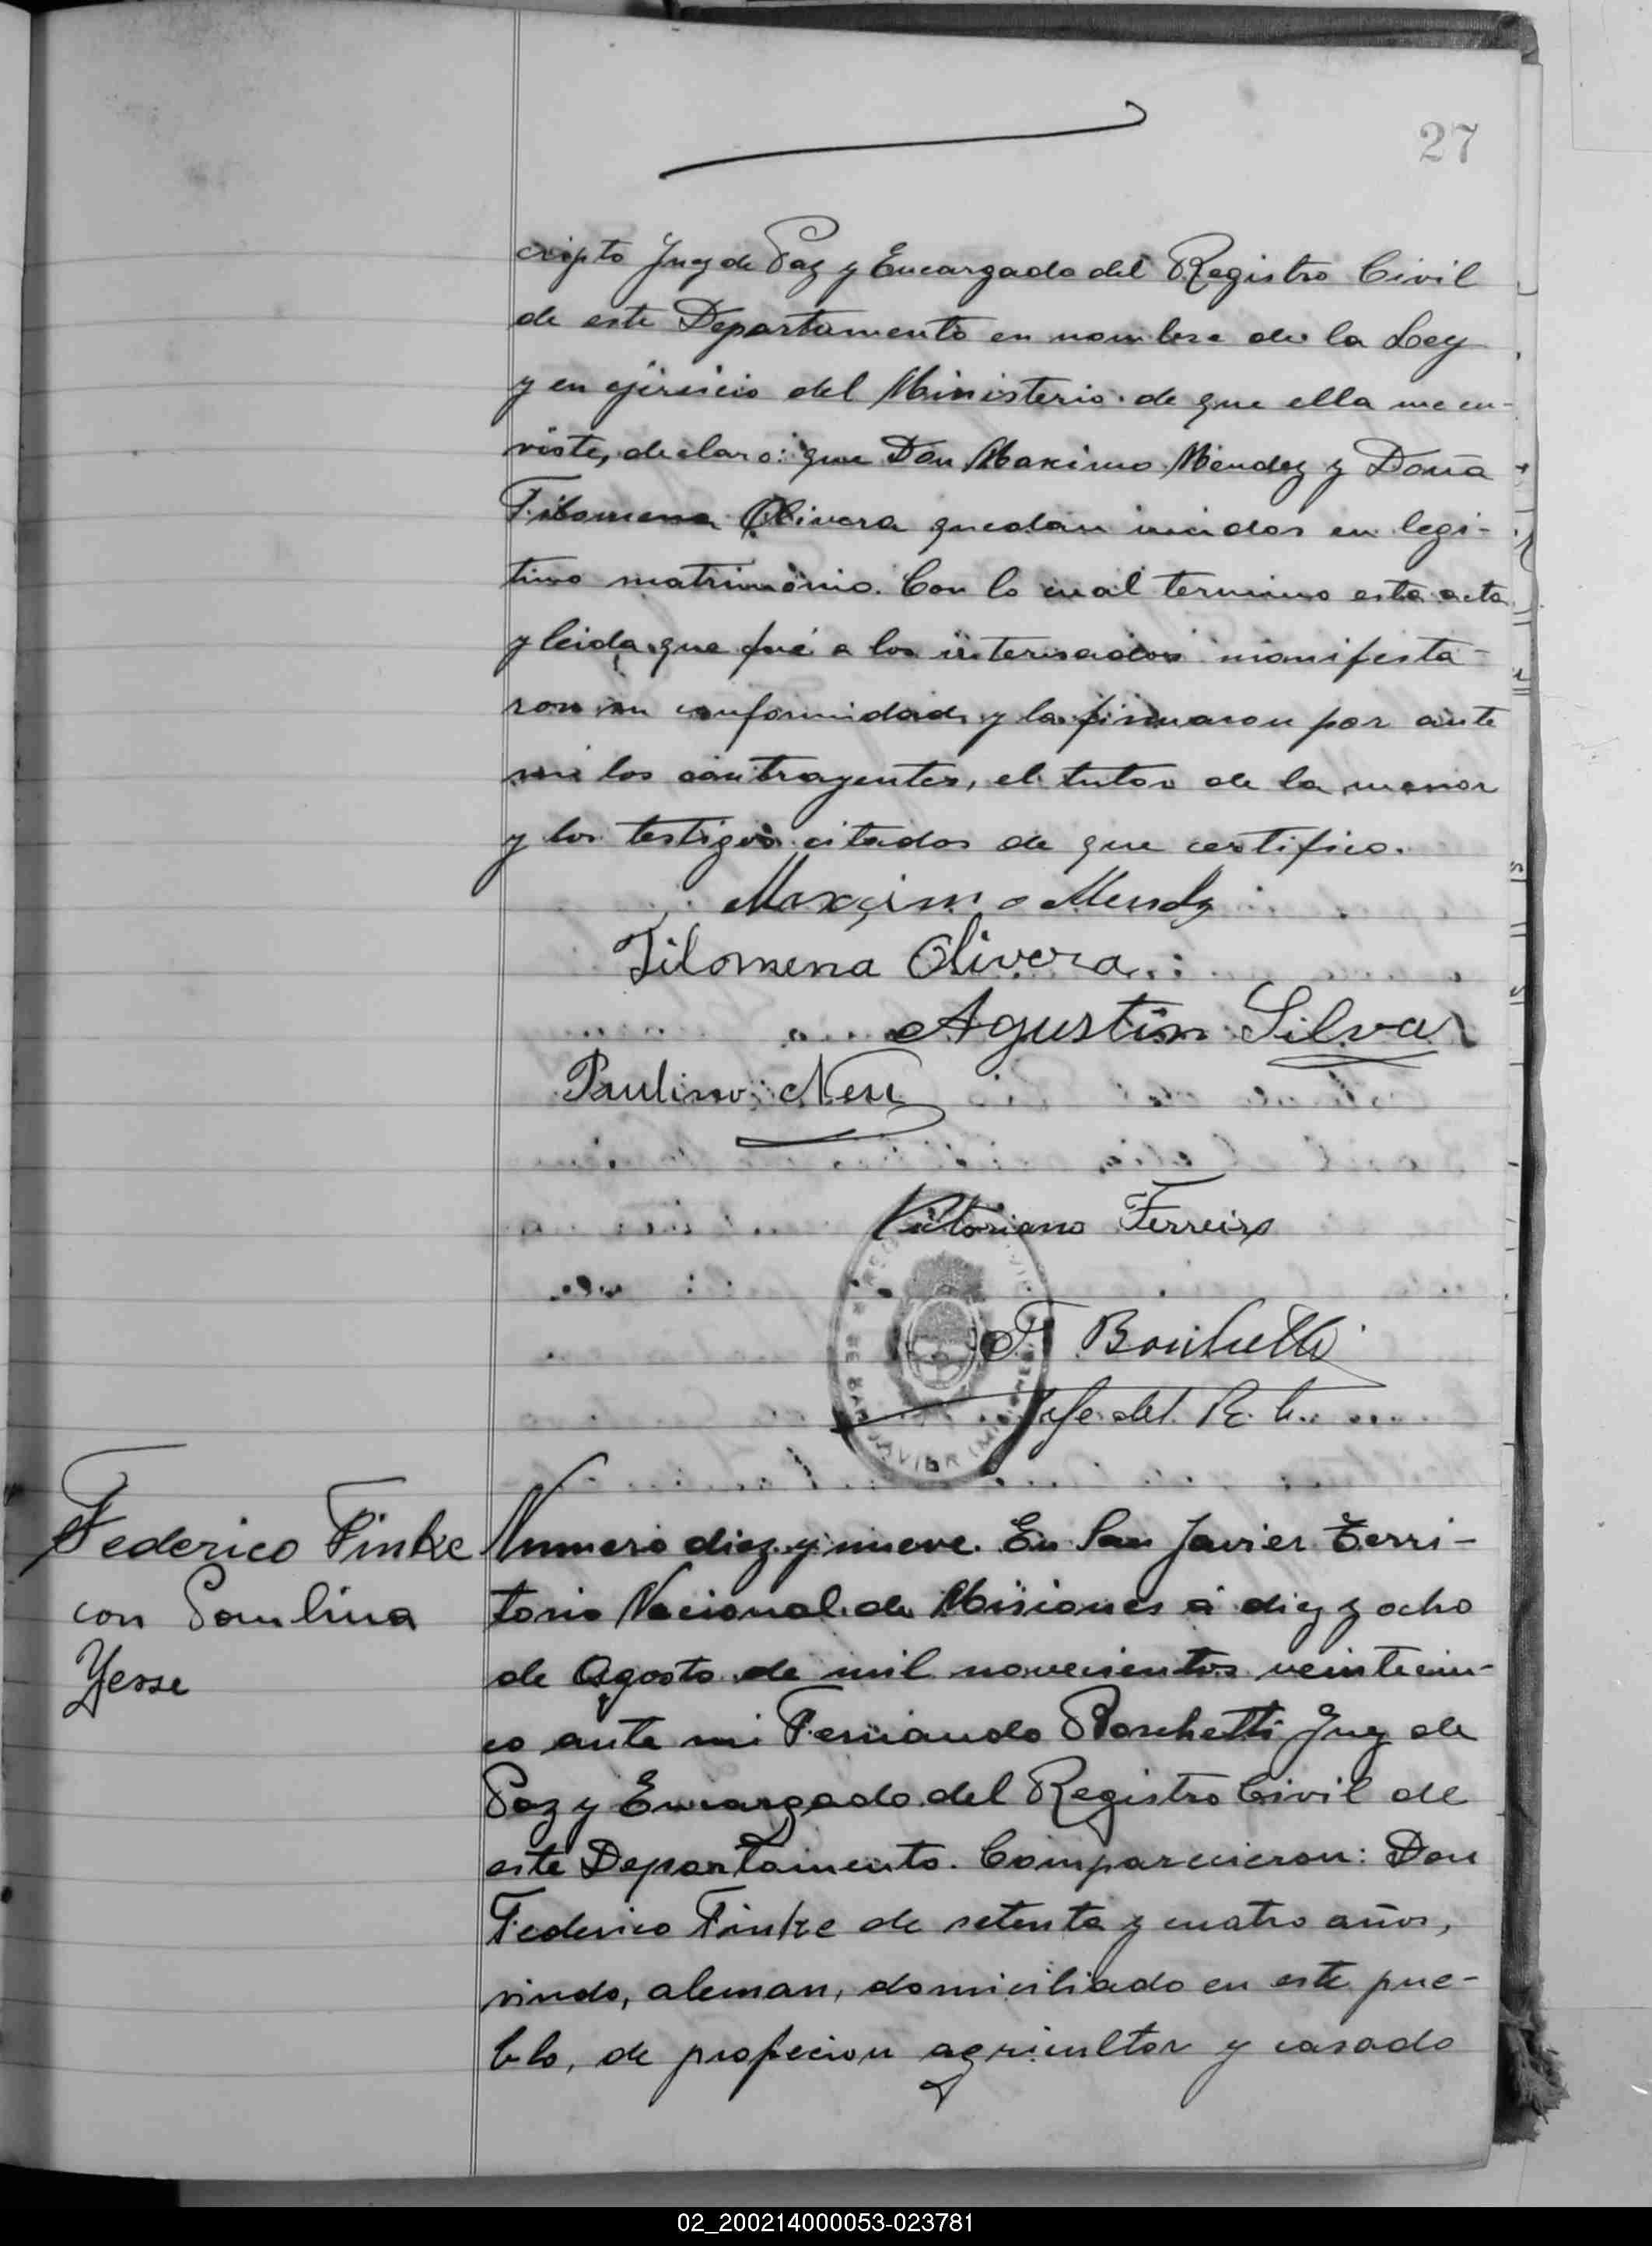 27
cripto Juez de Paz y Encargado del Registro Civil
de este Departamento en nombre de la Ley
y en ejercicio del Ministerio de que ella me en-
viste, declaro: que Don Maximo Mendez y Doña
Filomena Olivera quedan unidos en legi-
timo matrimonio. Con lo cual termino esta acta
y leida que fué a los interesados manifesta-
ron su conformidad y la firmaron por ante
mi los contrayentes, el tutor de la menor
y los testigos citados de que certifico.
Maxcimo Mendz
Filomena Olivera
Agustin Silva
Paulino
Victoriano Ferreira
F
Jefe del R. C.
SAN JAVIER
Federico Finke
con Paulina
Yesse
Numero diez y nueve. En San Javier Terri-
torio Nacional de Misiones a diez y ocho
de Agosto de mil novecientos veinticin-
co ante mi Fernando Boschetti Juez de
Paz y Encargado del Registro Civil de
este Departamento. Comparecieron: Don
Federico Finke de setenta y cuatro años,
viudo, aleman, domiciliado en este pue-
blo, de profecion agricultor y casado
02_200214000053-023781